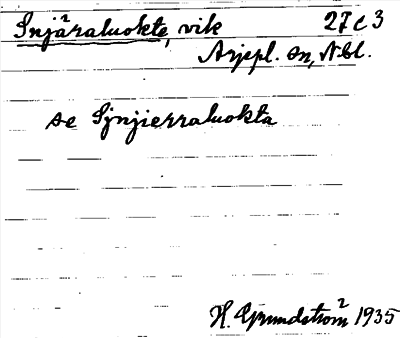 Snjäraluokte, vik 27 c 3
Arjepl. sn, Nbl.
se Sjnjierraluokta
H. Grundström 1935